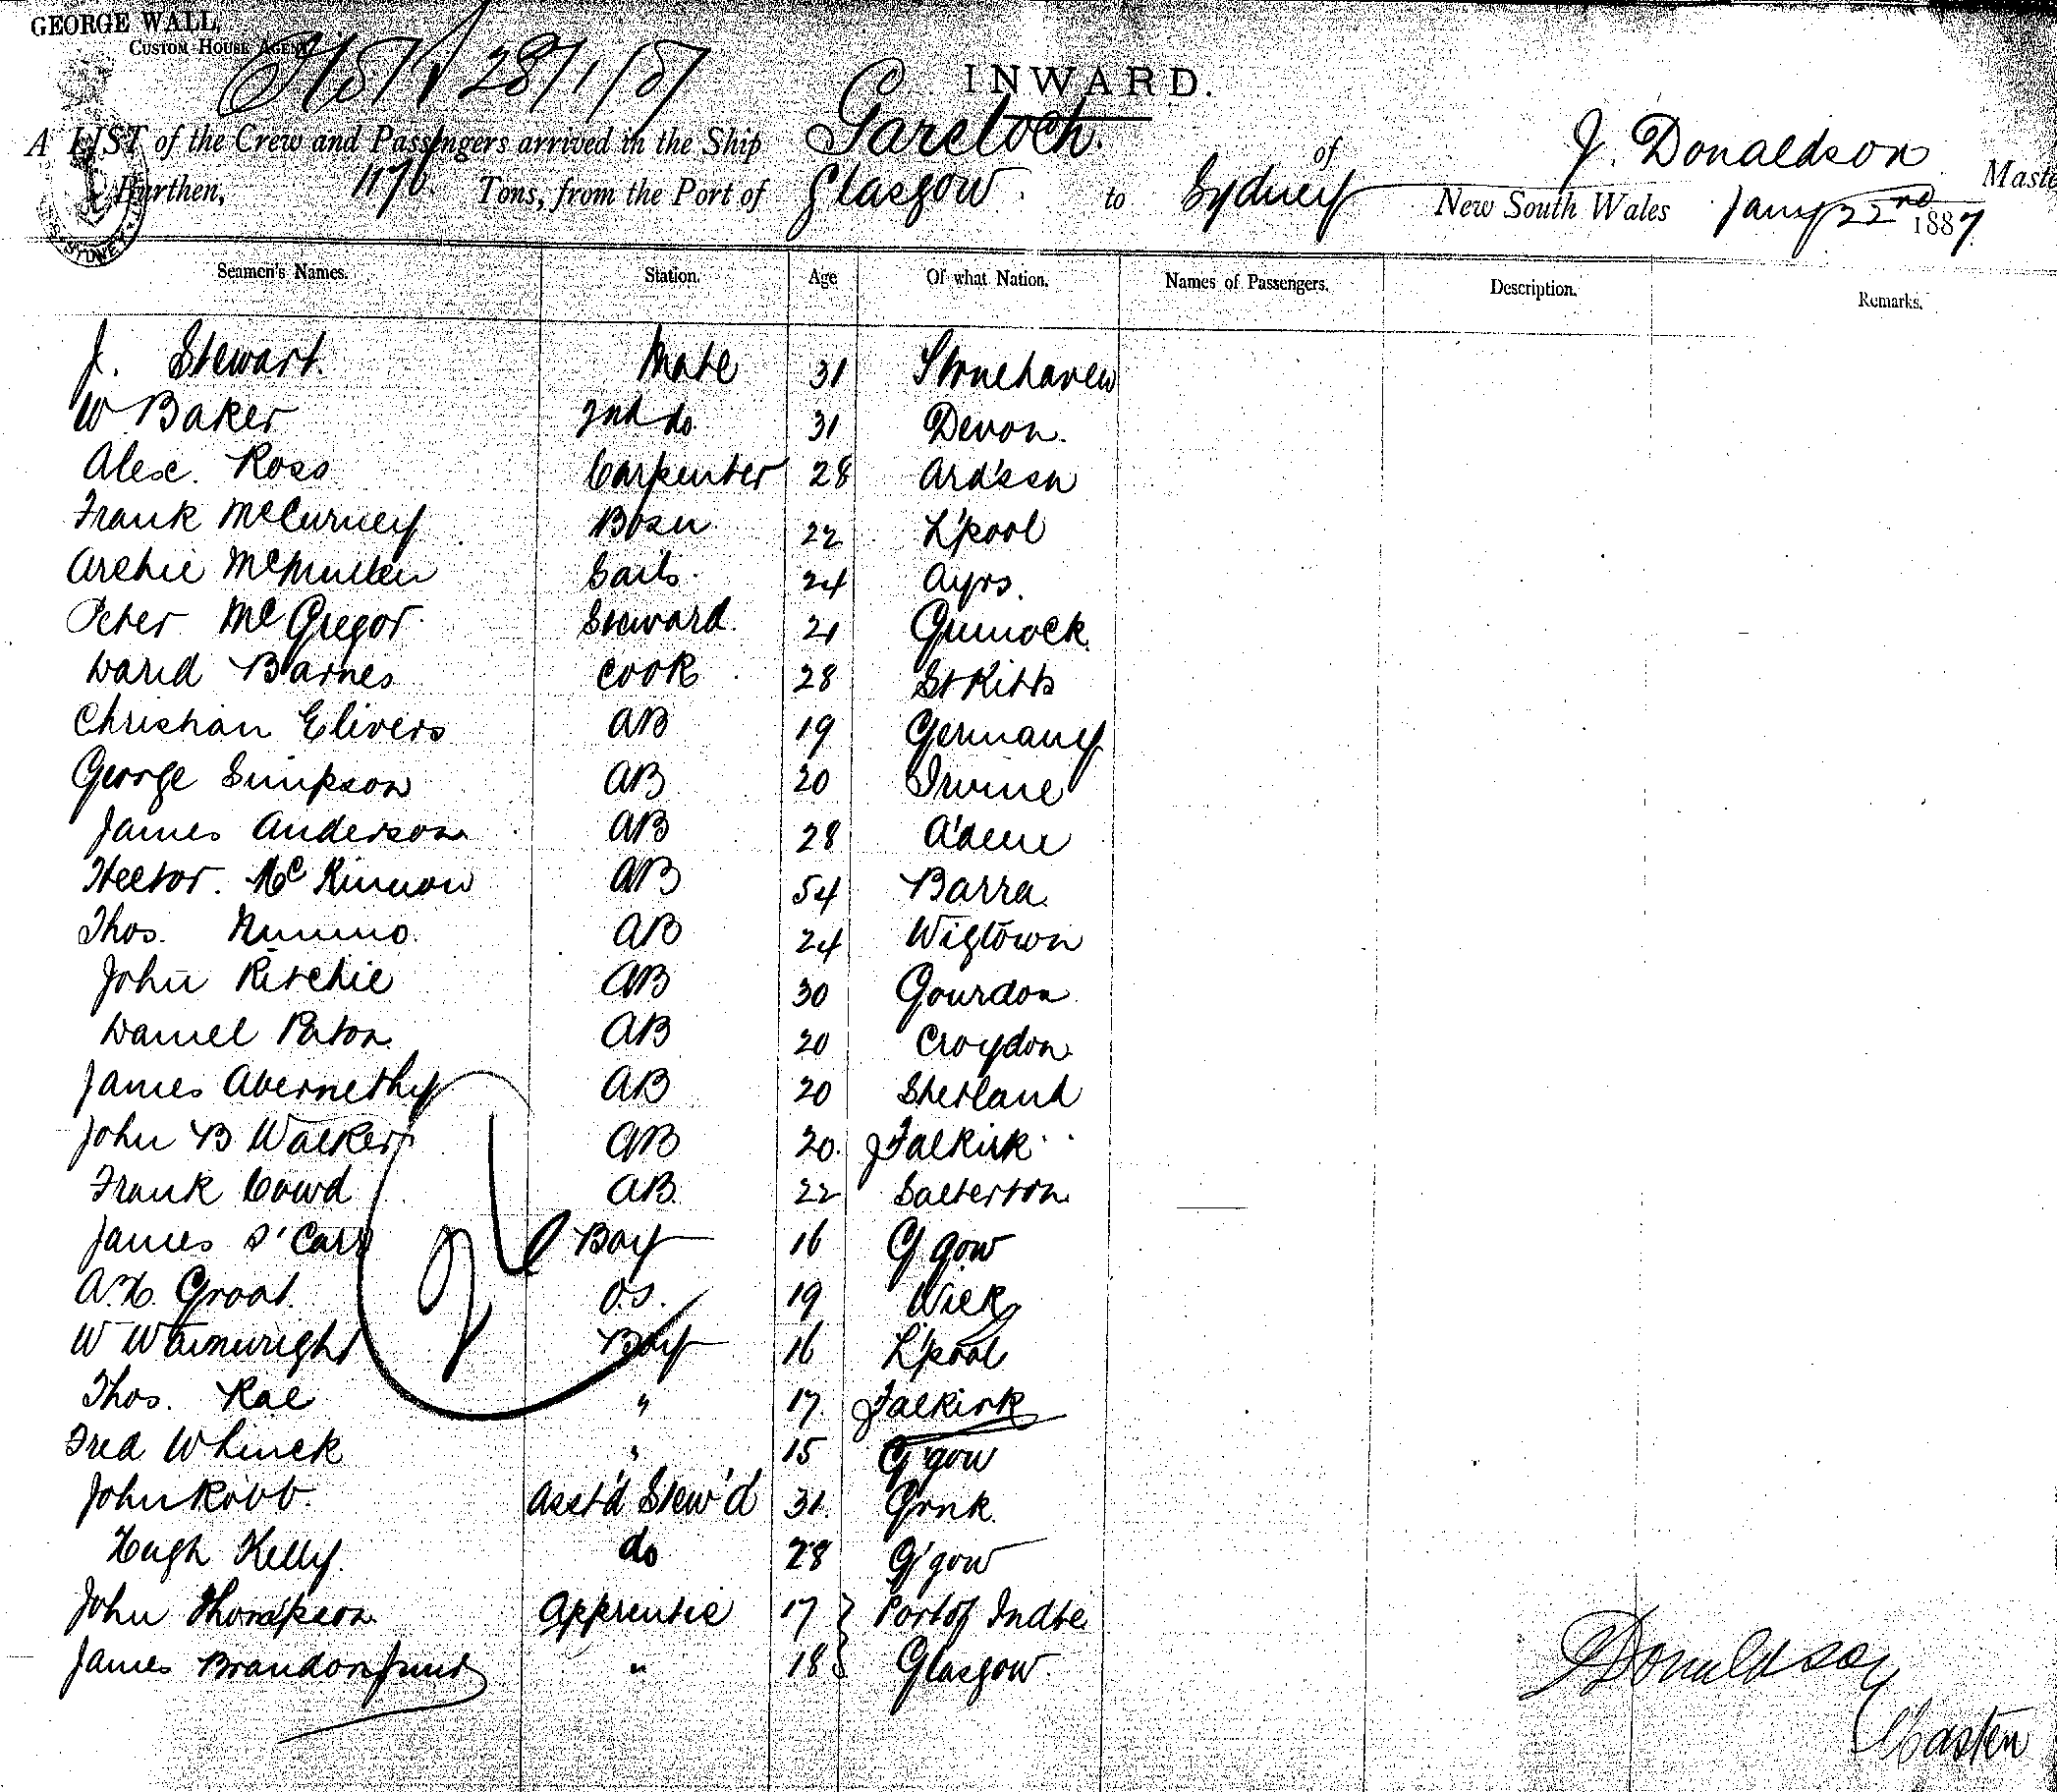 GEORGE WALL,
CUSTOM HOUSE AGENT
28/1/87
INWARD.
A LIST of the Crew and Passengers arrived in the Ship Gareloch. of J. Donaldson Maste
Burthen, 1176 Tons, from the Port of Glasgow to Sydney New South Wales Jany 22nd 1887
Seamen's Names. Station. Age Of what Nation. Names of Passengers. Description. Remarks.
J. Stewart. Mate 31 Stonehaven
W Baker 2nd do 31 Devon.
Alex. Ross Carpenter 28 Ard'ssn
Frank McCurney Bosn 22 L'pool
Archie McMullen Sails. 24 Ayrs.
Peter McGregor Steward. 21 Greenock
David Barnes Cook 28 St Kitts
Christian Elivers AB 19 Germany
George Simpson AB 20 Irvine
James Anderson AB 28 A'deen
Hector. McKinnon AB 54 Barra.
Thos. Nimmo. AB 24 Wigtown
John Ritchie AB 30 Gourdon
Daniel Paton AB 20 Croydon
James Abernethy AB 20 Shetland
John B Walker AB 20 Falkirk
Frank Coward AB. 22 Salterton
James Carr Boy 16 G'gow
A. H. Groat. O.S. 19 Wick
W Wainwright Boy 16 L'pool
Thos. Rae " 17 Falkirk
Fred Whinck " 15 G'gow
John Robb. Asst'd Stew'd 31 Grnk.
Hugh Kelly. do 28 G'gow
John Thompson Apprentice 17 } Port of Indte
James Brandon " 18 } Glasgow.
J Donaldson
Master